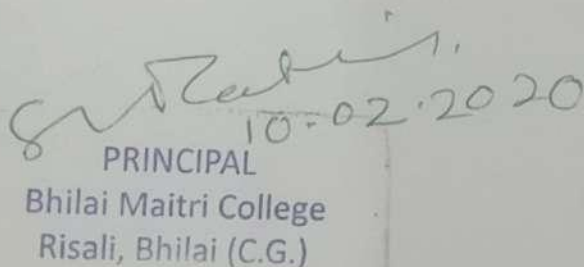 10-02-2020
PRINCIPAL
Bhilai Maitri College
Risali, Bhilai (C.G.)